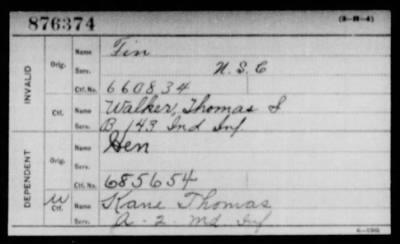 876374 (3-H-4)
INVALID
Orig.
Name Fin
Serv. N.S.C
Ctf. No. 660834
Ctf.
Name Walker, Thomas S
Serv. B 143 Ind Inf
DEPENDENT
Orig.
Name Gen
Serv.
Ctf. No. 685654
W Ctf.
Name Kane Thomas
Serv. A - 2 - Md Inf